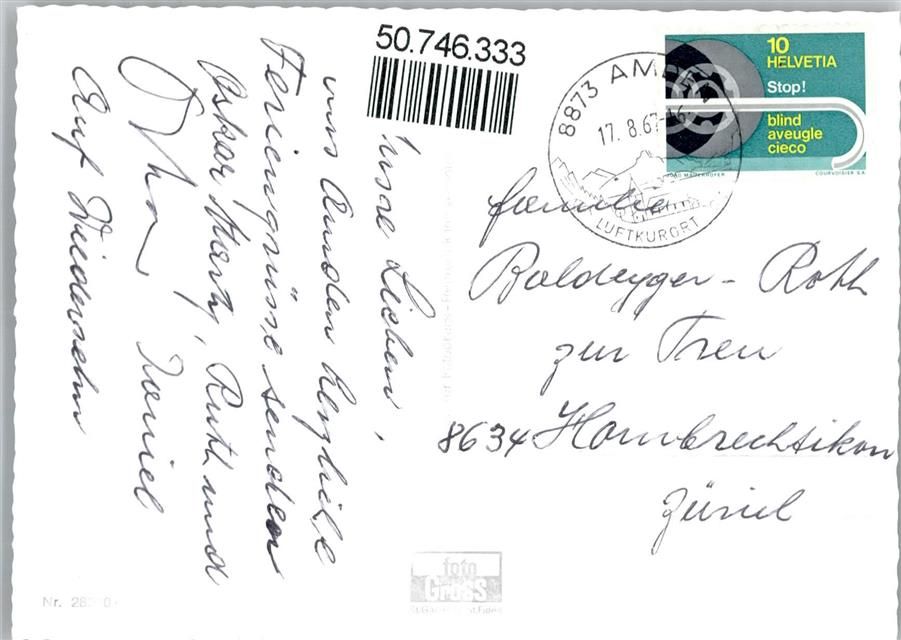 50.746.333
8873 AMDEN
17.8.67-16
LUFTKURORT
10
HELVETIA
Stop!
blind
aveugle
cieco
COURVOISIER S.A.
Familie
Boldegger - Roth
zur Treu
8634 Hombrechtikon
Zürich
Unsre Lieben,
uns Amden herzliche
Feriengrüsse senden
Oskar Marty, Ruth und
Daniel
Auf Wiedersehn
foto
GROSS
Nr. 28